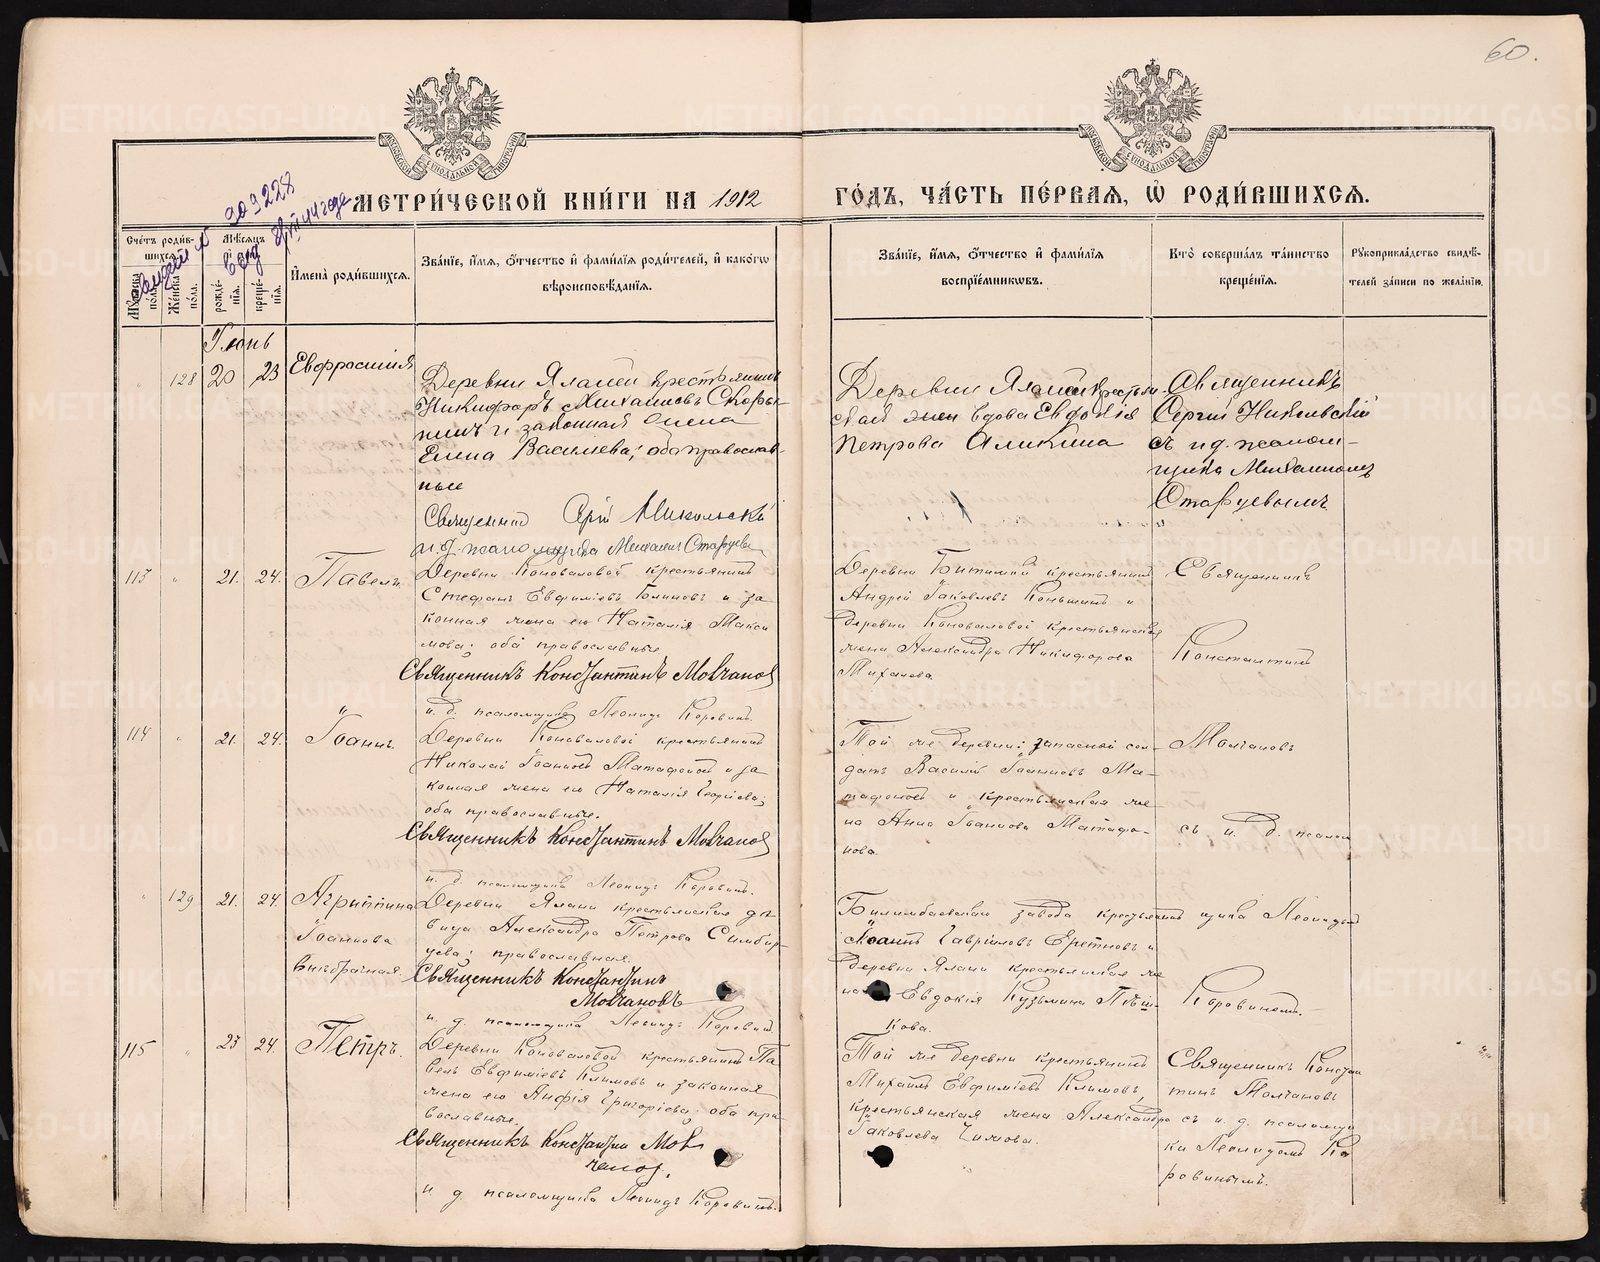 60.
МЕТРИ́ЧЕСКОЙ КНИ́ГИ НА 1912 ГО́ДЪ, ЧА́СТЬ ПЕ́РВАЯ, Ѡ҆ РОДИ́ВШИХСѦ.
Сче́тъ роди́вшихсѧ.
Мꙋ́жеска по́ла.
Же́нска по́ла.
Мѣ́сѧцъ и҆
рожде́нїѧ.
креще́нїѧ.
И҆мена̀ роди́вшихсѧ.
Зва́нїе, и҆́мѧ, ѻ҆́тчество и҆ фами́лїѧ роди́телей, и҆ како́гѡ
вѣроисповѣ́данїѧ.
Зва́нїе, и҆́мѧ, ѻ҆́тчество и҆ фами́лїѧ
воспрїе́мникѡвъ.
Кто̀ соверша́лъ та́инство
креще́нїѧ.
Рꙋкоприкла́дство свидѣ́-
телей за́писи по жела́нїю.
Іюнь
128 20 23 Евфросинія
Деревни Яламы крестьянинъ
Никифоръ Михаиловъ Скоры-
нинъ и законная жена
Елена Васильева; оба православ-
ные
Священник Сергій Никольскій
и. д. псаломщика Михаил Старцев
Деревни Яламы крестьян
ская жен вдова Евдокія
Петрова Аликина
Священникъ
Сергій Никольскій
съ и д. псалом-
щика Михаиломъ
Старцевымъ
113 " 21. 24. Павелъ.
Деревни Коноваловой крестьянинъ
Стефанъ Евфиміевъ Блиновъ и за
конная жена его Наталія Макси
мова; оба православные
Священникъ Константинъ Молчанов
и. д. псаломщика Леонидъ Коровинъ.
Деревни Битимки крестьянинъ
Андрей Іаковлевъ Коньшинъ и
деревни Коноваловой крестьянская
жена Александра Никифорова
Михалева.
Священникъ
Константинъ
114 " 21. 24. Іоаннъ.
Деревни Коноваловой крестьянинъ
Николай Іоанновъ Матафоновъ и за
конная жена его Наталія Георгіева;
оба православные.
Священникъ Константинъ Молчанов
и. д. псаломщика Леонидъ Коровинъ.
Той же деревни: запасной сол-
датъ Василій Іоанновъ Ма-
тафоновъ и крестьянская же-
на Анна Іоаннова Матафо-
нова.
Молчановъ
съ и. д. псалом
" 129 21. 24. Агриппина
Іоаннова
внѣбрачная.
Деревни Ялани крестьянская дѣ
вица Александра Петрова Симбир-
цева; православная.
Священникъ Константинъ
Молчановъ
и. д. псаломщика Леонидъ Коровин.
Билимбаевскаго завода крестьянинъ
Іоаннъ Гавріиловъ Еретновъ и
деревни Ялани крестьянская же
на Евдокія Кузьмина Пѣш-
кова.
щика Леонидом
Коровинымъ.
115 " 23 24. Петръ.
Деревни Коноваловой крестьянинъ Па
велъ Евфиміевъ Климовъ и законная
жена его Анфія Григорьева; оба пра
вославные.
Священникъ Константин Мол
чанов.
и д. псаломщика Леонидъ Коровинъ.
Той же деревни крестьянинъ
Михаилъ Евфиміевъ Климовъ,
крестьянская жена Александра
Іаковлева Чижова.
Священникъ Констан
тинъ Молчановъ
съ и. д. псаломщи
ка Леонидомъ Ко
ровинымъ.
METRIKI.GASO-URAL.RU